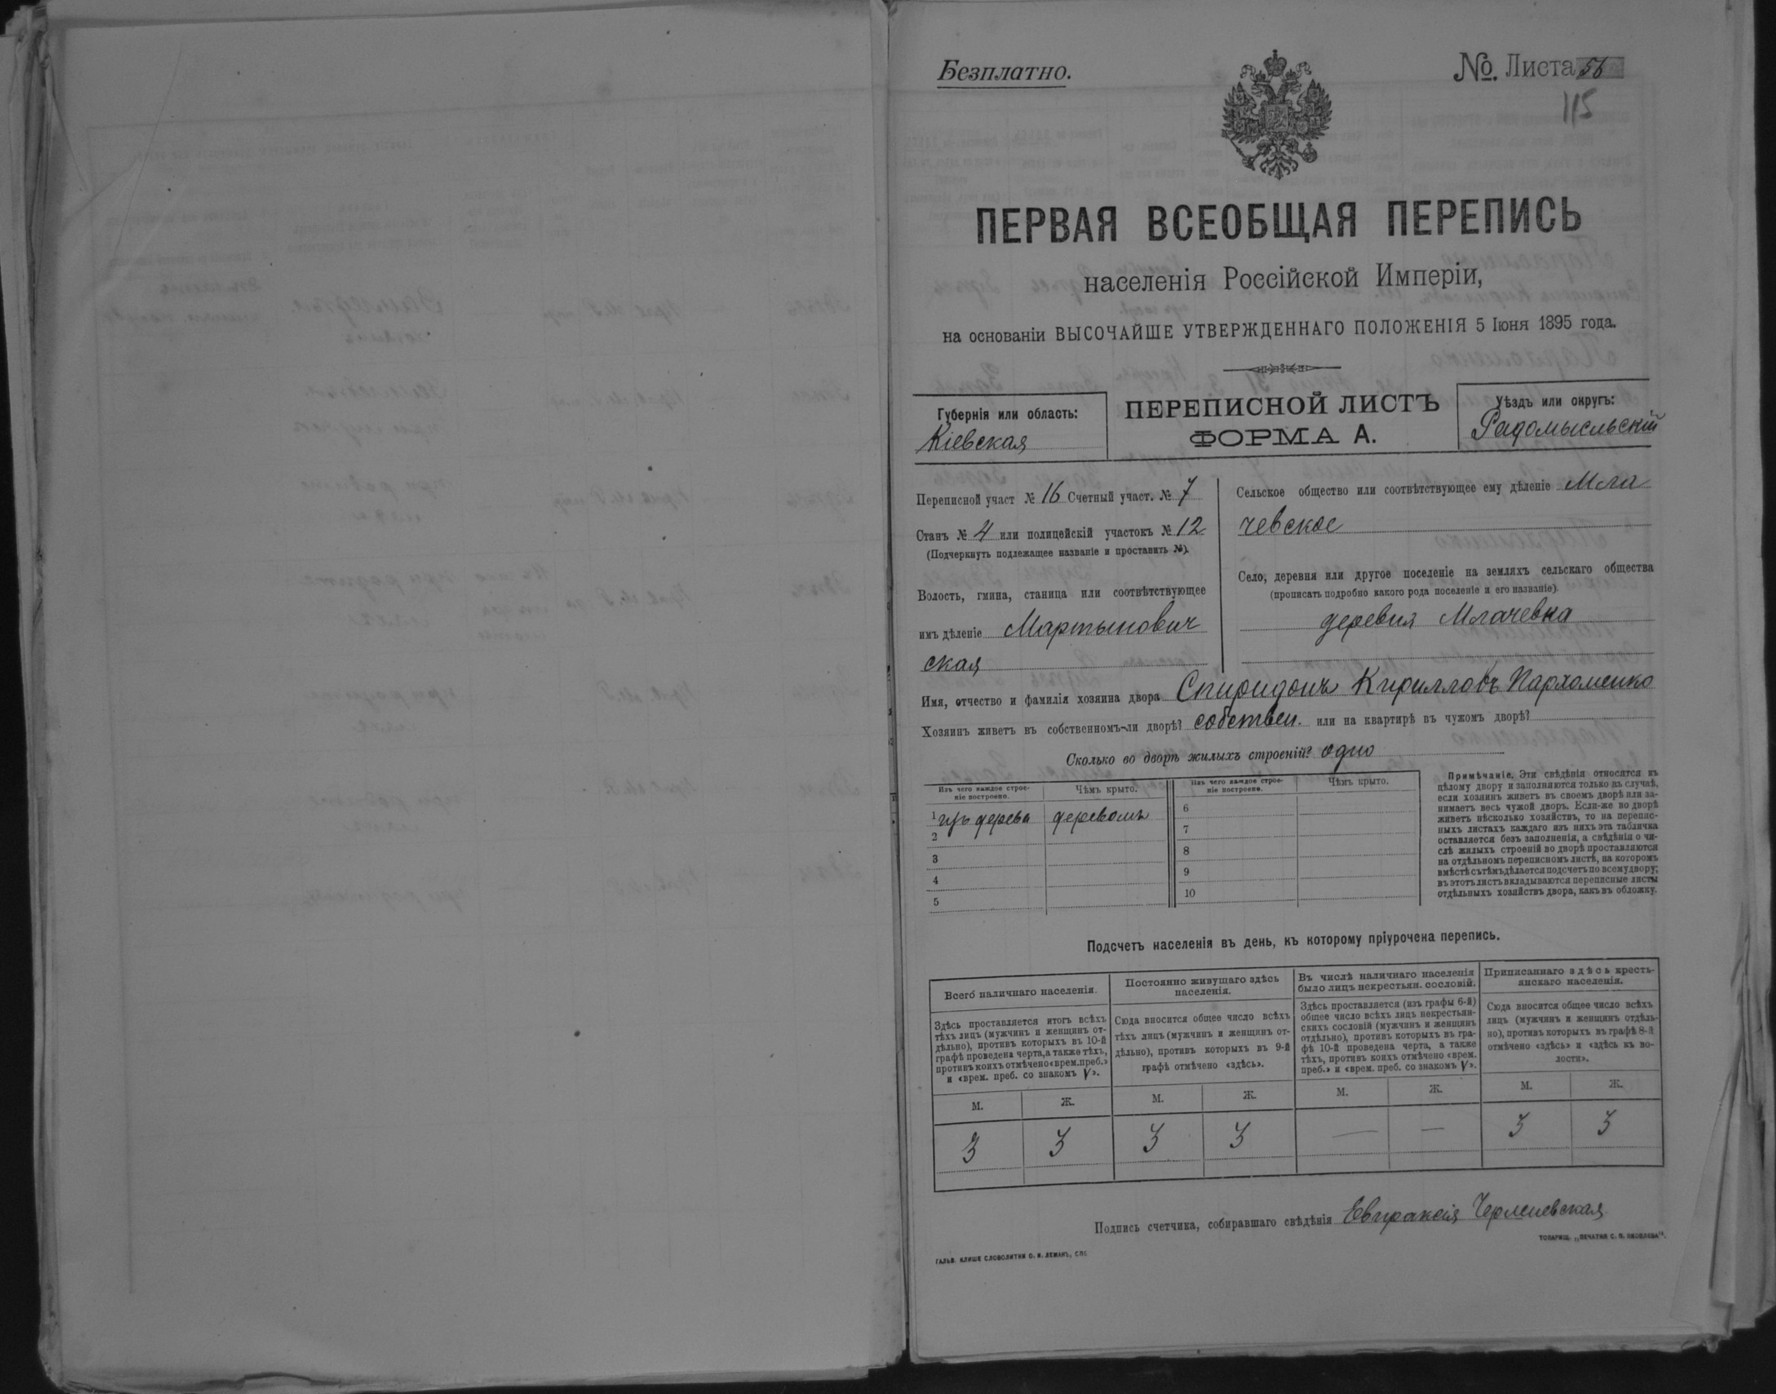 Безплатно.
№. Листа 56
115
ПЕРВАЯ ВСЕОБЩАЯ ПЕРЕПИСЬ
населенія Россійской Имперіи,
на основаніи ВЫСОЧАЙШЕ УТВЕРЖДЕННАГО ПОЛОЖЕНІЯ 5 Іюня 1895 года.
Губернія или область:
Кіевская
ПЕРЕПИСНОЙ ЛИСТЪ
ФОРМА А.
Уѣздъ или округъ:
Радомысльскій
Переписной участ № 16 Счетный участ. № 7
Станъ № 4 или полицейскій участокъ № 12
(Подчеркнуть подлежащее названіе и проставить №).
Волость, гмина, станица или соотвѣтствующее
имъ дѣленіе Мартынович
ская
Сельское общество или соотвѣтствующее ему дѣленіе Мла
чевское
Село, деревня или другое поселеніе на земляхъ сельскаго общества
(прописать подробно какого рода поселеніе и его названіе)
деревня Млачевка
Имя, отчество и фамилія хозяина двора Спиридонъ Кирилловъ Пархоменко
Хозяинъ живетъ въ собственномъ-ли дворѣ? собствен. или на квартирѣ въ чужомъ дворѣ?
Сколько во дворѣ жилыхъ строеній? одно
Изъ чего каждое строе-
ніе построено.
Чѣмъ крыто.
Изъ чего каждое строе-
ніе построено.
Чѣмъ крыто.
1 изъ дерева деревомъ
2
3
4
5
6
7
8
9
10
Примѣчаніе. Эти свѣдѣнія относятся къ
цѣлому двору и заполняются только въ случаѣ,
если хозяинъ живетъ въ своемъ дворѣ или за-
нимаетъ весь чужой дворъ. Если-же во дворѣ
живетъ нѣсколько хозяйствъ, то на перепис-
ныхъ листахъ каждаго изъ нихъ эта табличка
оставляется безъ заполненія, а свѣдѣнія о чи-
слѣ жилыхъ строеній во дворѣ проставляются
на отдѣльномъ переписномъ листѣ, на которомъ
вмѣстѣ съ тѣмъ дѣлается подсчетъ по всему двору;
въ этотъ листъ вкладываются переписные листы
отдѣльныхъ хозяйствъ двора, какъ въ обложку.
Подсчетъ населенія въ день, къ которому пріурочена перепись.
Всего наличнаго населенія.
Здѣсь проставляется итогъ всѣхъ
тѣхъ лицъ (мужчинъ и женщинъ от-
дѣльно), противъ которыхъ въ 10-й
графѣ проведена черта, а также тѣхъ,
противъ коихъ отмѣчено «врем. преб.»
и «врем. преб. со знакомъ V».
М. Ж.
3 3
Постоянно живущаго здѣсь
населенія.
Сюда вносится общее число всѣхъ
тѣхъ лицъ (мужчинъ и женщинъ от-
дѣльно), противъ которыхъ въ 9-й
графѣ отмѣчено «здѣсь».
М. Ж.
3 3
Въ числѣ наличнаго населенія
было лицъ некрестьян. сословій.
Здѣсь проставляется (изъ графы 6-й)
общее число всѣхъ лицъ некрестьян-
скихъ сословій (мужчинъ и женщинъ
отдѣльно), противъ которыхъ въ гра-
фѣ 10-й проведена черта, а также
тѣхъ, противъ коихъ отмѣчено «врем.
преб.» и «врем. преб. со знакомъ V».
М. Ж.
— —
Приписаннаго здѣсь кресть-
янскаго населенія.
Сюда вносится общее число всѣхъ
лицъ (мужчинъ и женщинъ отдѣль-
но), противъ которыхъ въ графѣ 8-й
отмѣчено «здѣсь» и «здѣсь въ во-
лости».
М. Ж.
3 3
Подпись счетчика, собиравшаго свѣдѣнія Евпраксія
ГАЛЬВ. КЛИШЕ СЛОВОЛИТНИ О. И. ЛЕМАНЪ, СПБ.
ТОВАРИЩ. „ПЕЧАТНЯ С. П. ЯКОВЛЕВА".